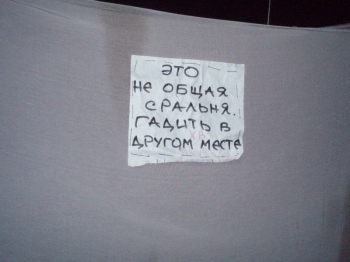 ЭТО
НЕ ОБЩАЯ
СРАЛЬНЯ.
ГАДИТЬ В
ДРУГОМ МЕСТЕ